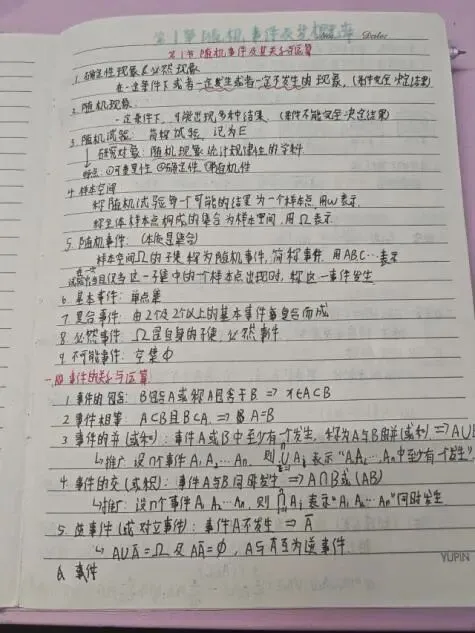 第1章 随机事件及其概率
第1节 随机事件及其关系与运算
1. 确定性现象&必然现象
在一定条件下或者一定发生或者一定不发生的现象。(条件完全决定结果)
2. 随机现象:
一定条件下,可能出现多种结果。(条件不能完全决定结果)
3. 随机试验: 简称试验, 记为E
研究对象: 随机现象统计规律性的学科
特点: ①可重复性 ②确定性 ③随机性
4. 样本空间
称随机试验每个可能的结果为一个样本点,用ω表示
称全体样本点构成的集合为样本空间,用Ω表示
5. 随机事件: (本质是集合)
样本空间Ω的子集称为随机事件,简称事件,用ABC…表示
在一次
试验当且仅当这一子集中的一个样本点出现时,称这一事件发生
6. 基本事件: 单点集
7. 复合事件: 由2个及2个以上的基本事件复合而成
8. 必然事件: Ω是自身的子集,必然事件
9. 不可能事件: 空集Φ
一. 事件的关系与运算
1. 事件的包含: B包含A或称A包含于B ⇒ A⊂B
2 事件相等: A⊂B且B⊂A ⇒ A=B
3 事件的并(或和): 事件A或B中至少有一个发生, 称为A与B的并(或和) ⇒ A∪B
↳推广: 设n个事件A₁ A₂…An, 则 ⋃Ai 表示“A₁A₂…An中至少有一个发生”
4 事件的交(或积): 事件A与B同时发生 ⇒ A∩B或(AB)
↳推广: 设n个事件A₁ A₂…An, 则 ⋂Ai 表示“A₁ A₂…An”同时发生
5. 逆事件(或对立事件): 事件A不发生 ⇒ Ā
↳ A∪Ā=Ω 及 AĀ=Φ, A与Ā互为逆事件
6. 事件
YUPIN